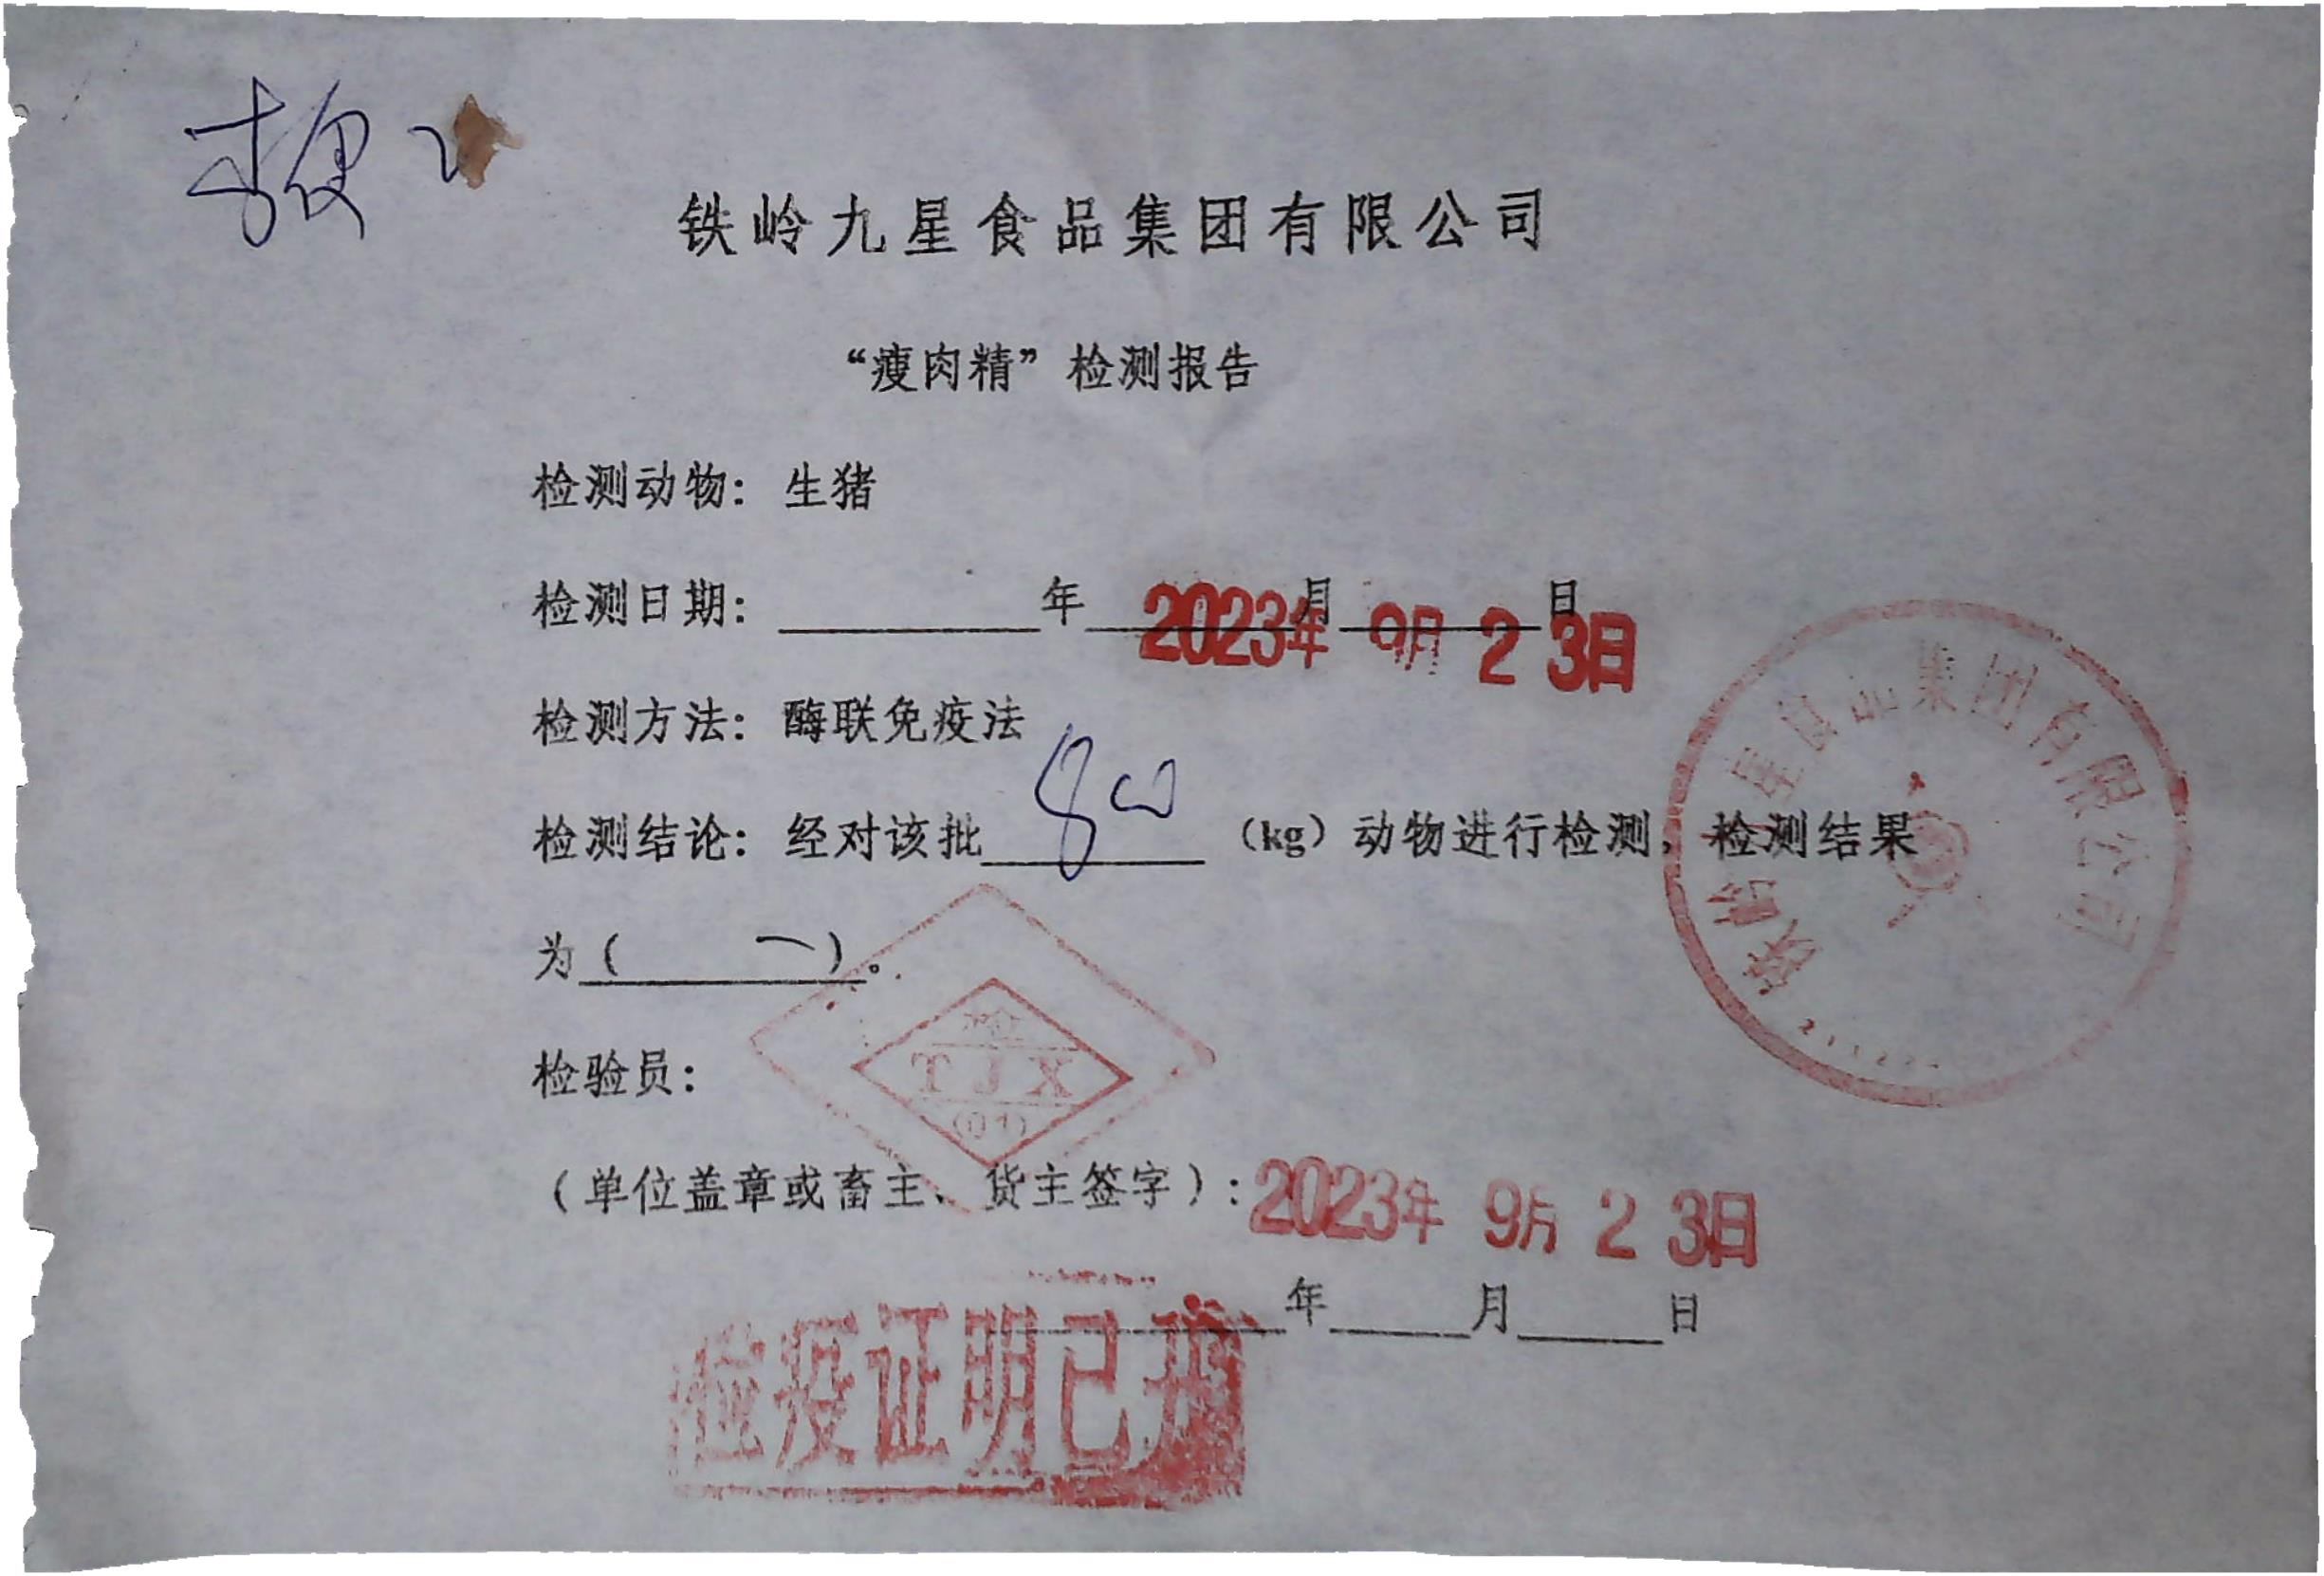 铁岭九星食品集团有限公司
“瘦肉精”检测报告
检测动物：生猪
检测日期：年月日
2023年 9月 23日
检测方法：酶联免疫法
检测结论：经对该批 800 (kg) 动物进行检测，检测结果
为（ 一）。
检验员：
检
TJX
(01)
（单位盖章或畜主、货主签字）：
2023年 9月 23日
年月日
检疫证明已开
铁岭九星食品集团有限公司